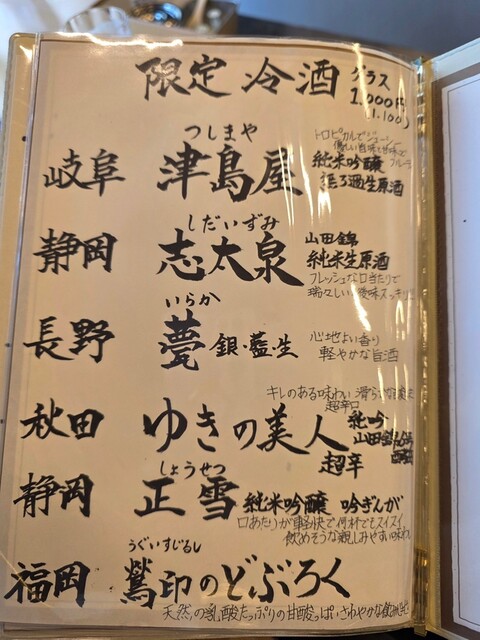 限定 冷酒 グラス
1,000円
(1,100)
つしまや
岐阜 津島屋
トロピカルでジューシー
優しい旨味と甘味で
フルーティ
純米吟醸
無ろ過生原酒
しだいずみ
静岡 志太泉
山田錦
純米生原酒
フレッシュな口当たりで
瑞々しい。後味スッキリ
いらか
長野 甍 銀・藍・生
心地よい香り
軽やかな旨酒
キレのある味わい 滑らかな
超辛口
秋田 ゆきの美人 純吟
山田錦
超辛
しょうせつ
静岡 正雪 純米吟醸 吟ぎんが
口あたりが軽快で何杯でもスイスイ
飲めそうな親しみやすい味わい
うぐいすじるし
福岡 鶯印のどぶろく
天然の乳酸たっぷりの甘酸っぱいさわやかな